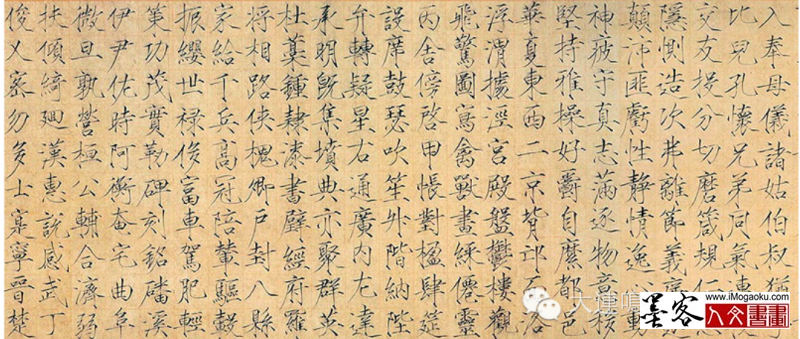 入奉母儀諸姑伯叔猶
比兒孔懷兄弟同氣連
交友投分切磨箴規仁
隱惻造次弗離節義廉
顛沛匪虧性靜情逸動
神疲守真志滿逐物意移
堅持雅操好爵自縻都邑
華夏東西二京背邙洛
浮渭據涇宮殿盤鬱樓觀
飛驚圖寫禽獸畫綵僊靈
丙舍傍啓甲帳對楹肆筵
設席鼓瑟吹笙升階納陛
弁轉疑星右通廣內左達
承明既集墳典亦聚群英
杜稾鍾隸漆書壁經府羅
將相路俠槐卿戶封八縣
家給千兵高冠陪輦驅轂
振纓世祿侈富車駕肥輕
策功茂實勒碑刻銘磻溪
伊尹佐時阿衡奄宅曲阜
微旦孰營桓公輔合濟弱
扶傾綺迴漢惠說感武丁
俊乂密勿多士寔寧晉楚
墨客
www.iMogaoku.com
人文書畫